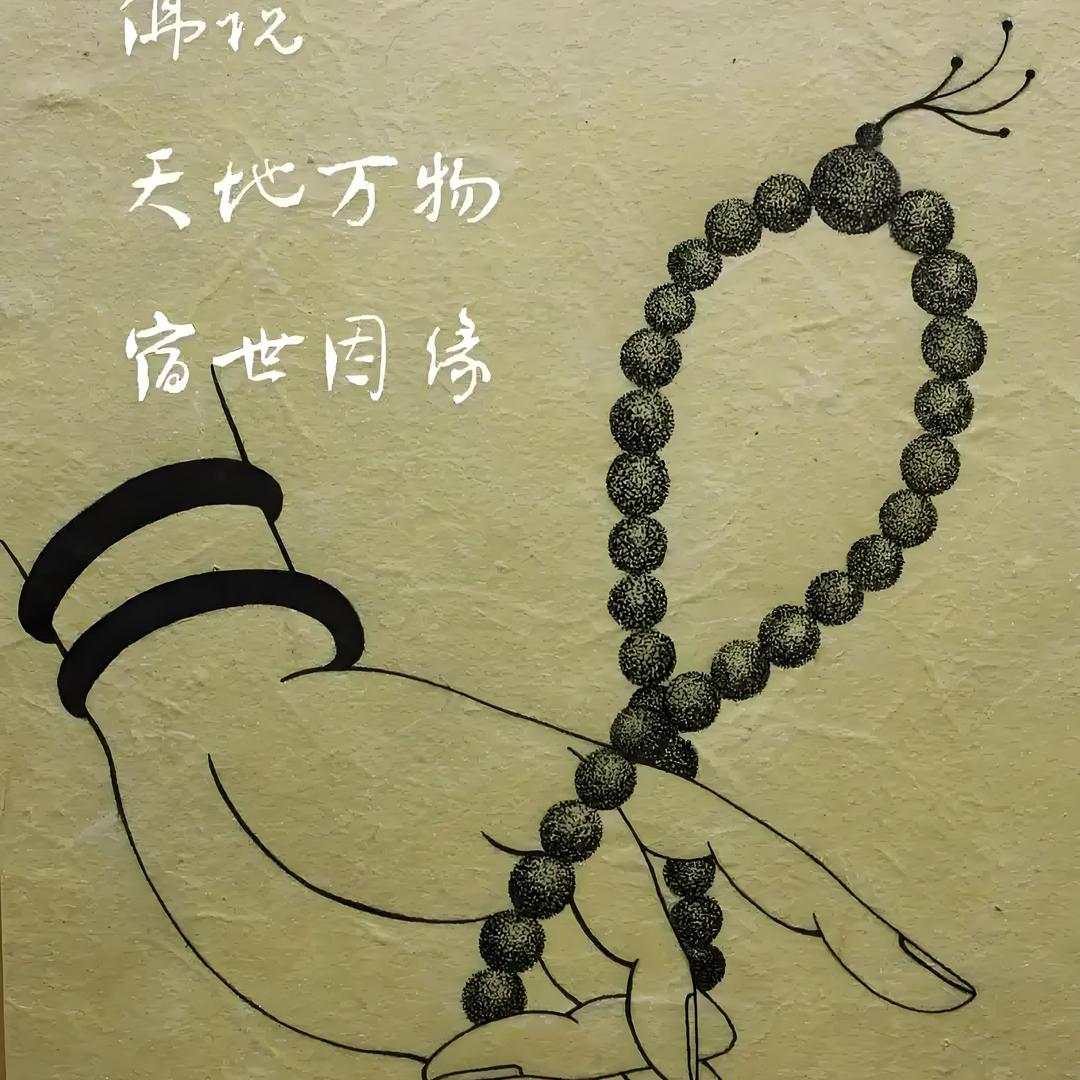 佛说
天地万物
宿世因缘